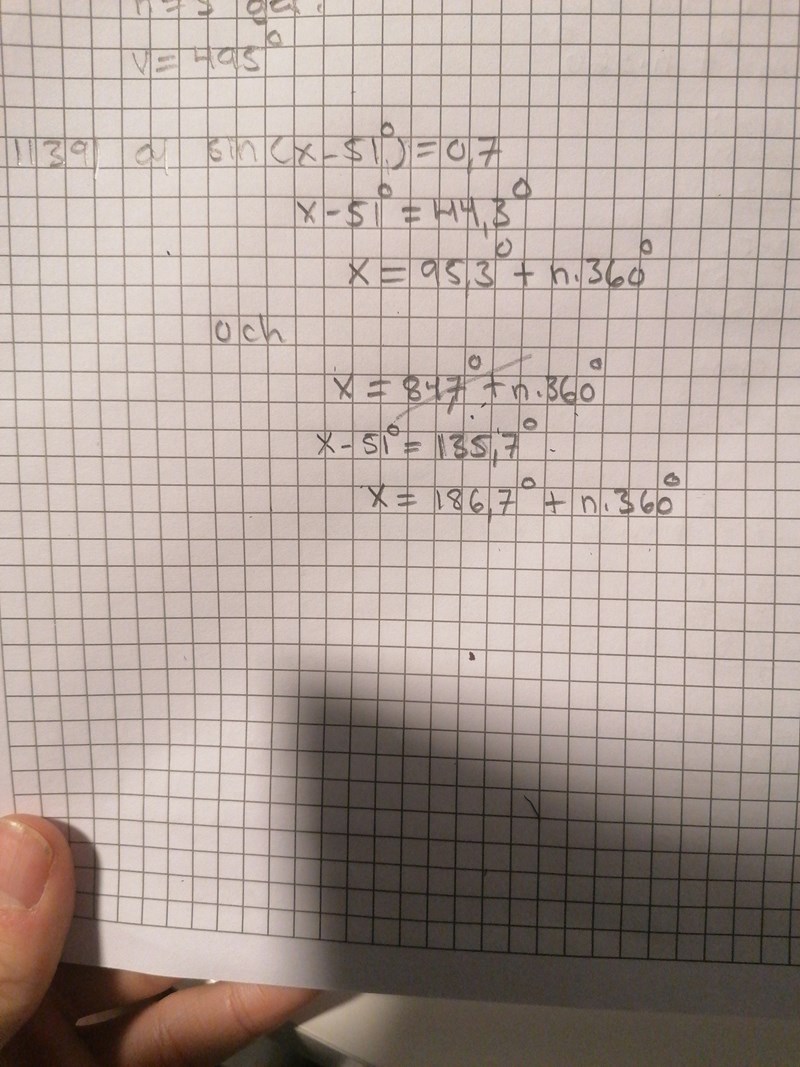 v = 495°
1139) a) sin(x-51°) = 0,7
x-51° = 44,3°
x = 95,3° + n.360°
och
x = 847° + n.360°
x-51° = 135,7°
x = 186,7° + n.360°